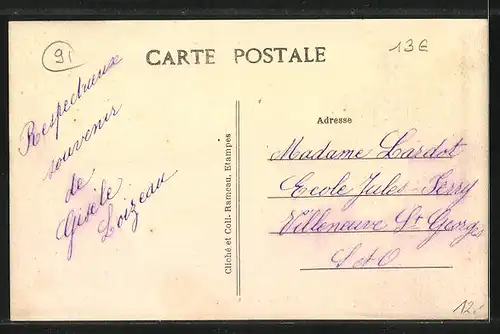 91
CARTE POSTALE
13€
Respectueux
souvenir
de
Gisèle
Loizeau
Cliché et Coll. Rameau, Etampes
Adresse
Madame Lardot
Ecole Jules-Ferry
Villeneuve St Georges
S et O
12.